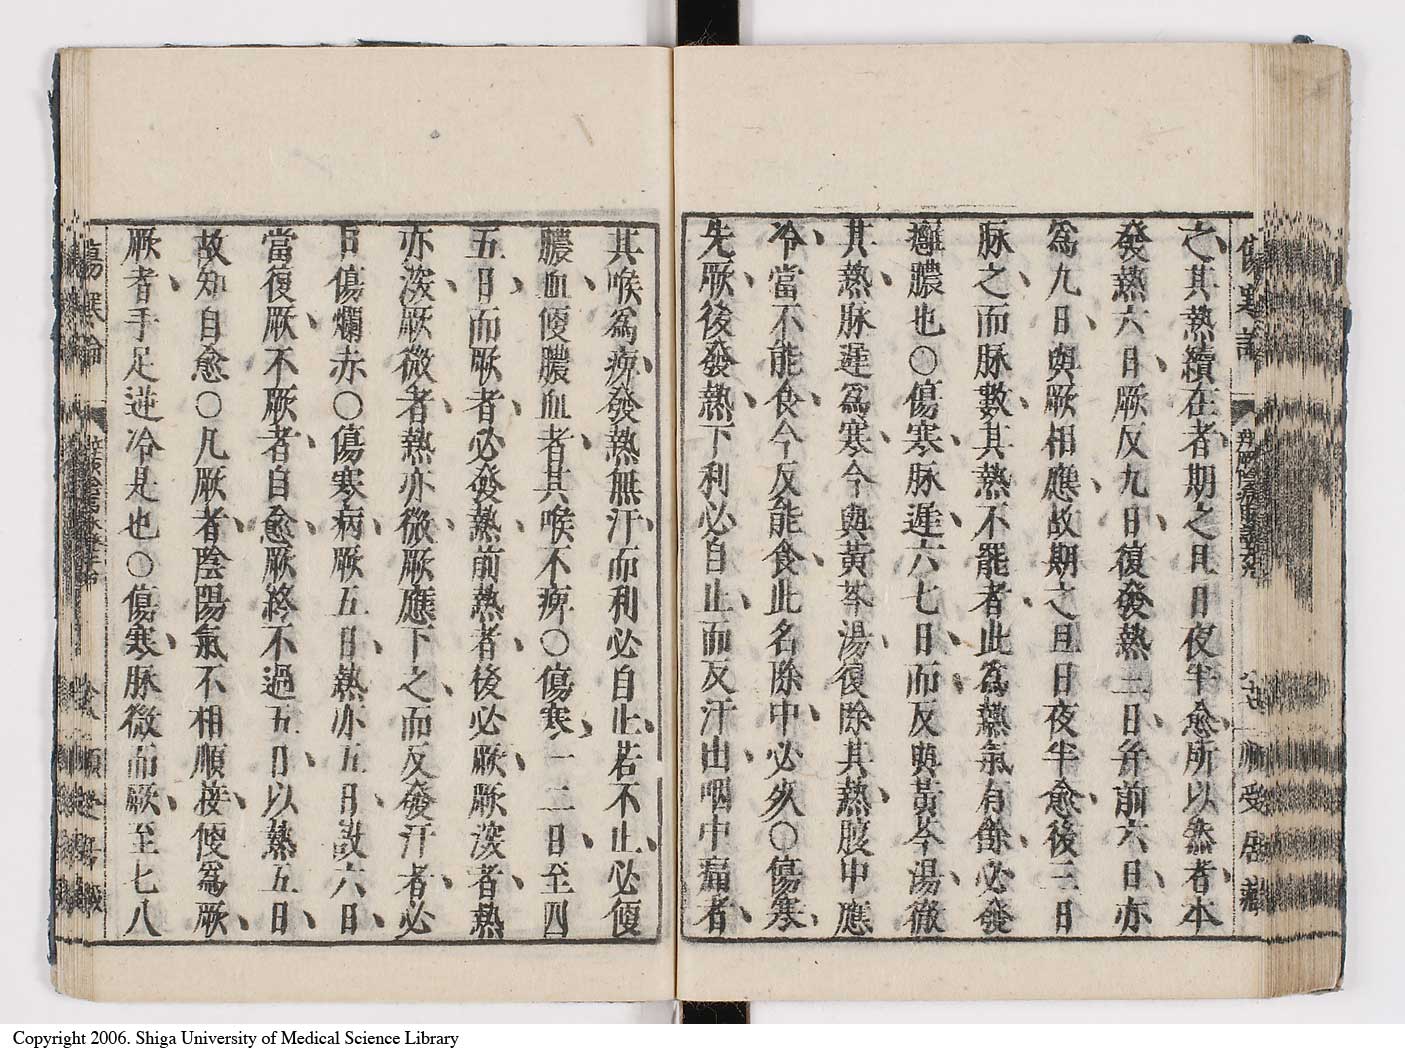 之其熱續在者期之旦日夜半愈所以然者本
發熱六日厥反九日復發熱三日并前六日亦
爲九日與厥相應故期之旦日夜半愈後三日
脉之而脉數其熱不罷者此爲熱氣有餘必發
癰膿也○傷寒脉遲六七日而反與黃芩湯徹
其熱脉遲爲寒今與黃芩湯復除其熱腹中應
冷當不能食今反能食此名除中必死○傷寒
先厥後發熱下利必自止而反汗出咽中痛者
其喉爲痹發熱無汗而利必自止若不止必便
膿血便膿血者其喉不痹○傷寒一二日至四
五日而厥者必發熱前熱者後必厥厥深者熱
亦深厥微者熱亦微厥應下之而反發汗者必
口傷爛赤○傷寒病厥五日熱亦五日設六日
當復厥不厥者自愈厥終不過五日以熱五日
故知自愈○凡厥者陰陽氣不相順接便爲厥
厥者手足逆冷是也○傷寒脉微而厥至七八
傷寒論
Copyright 2006. Shiga University of Medical Science Library